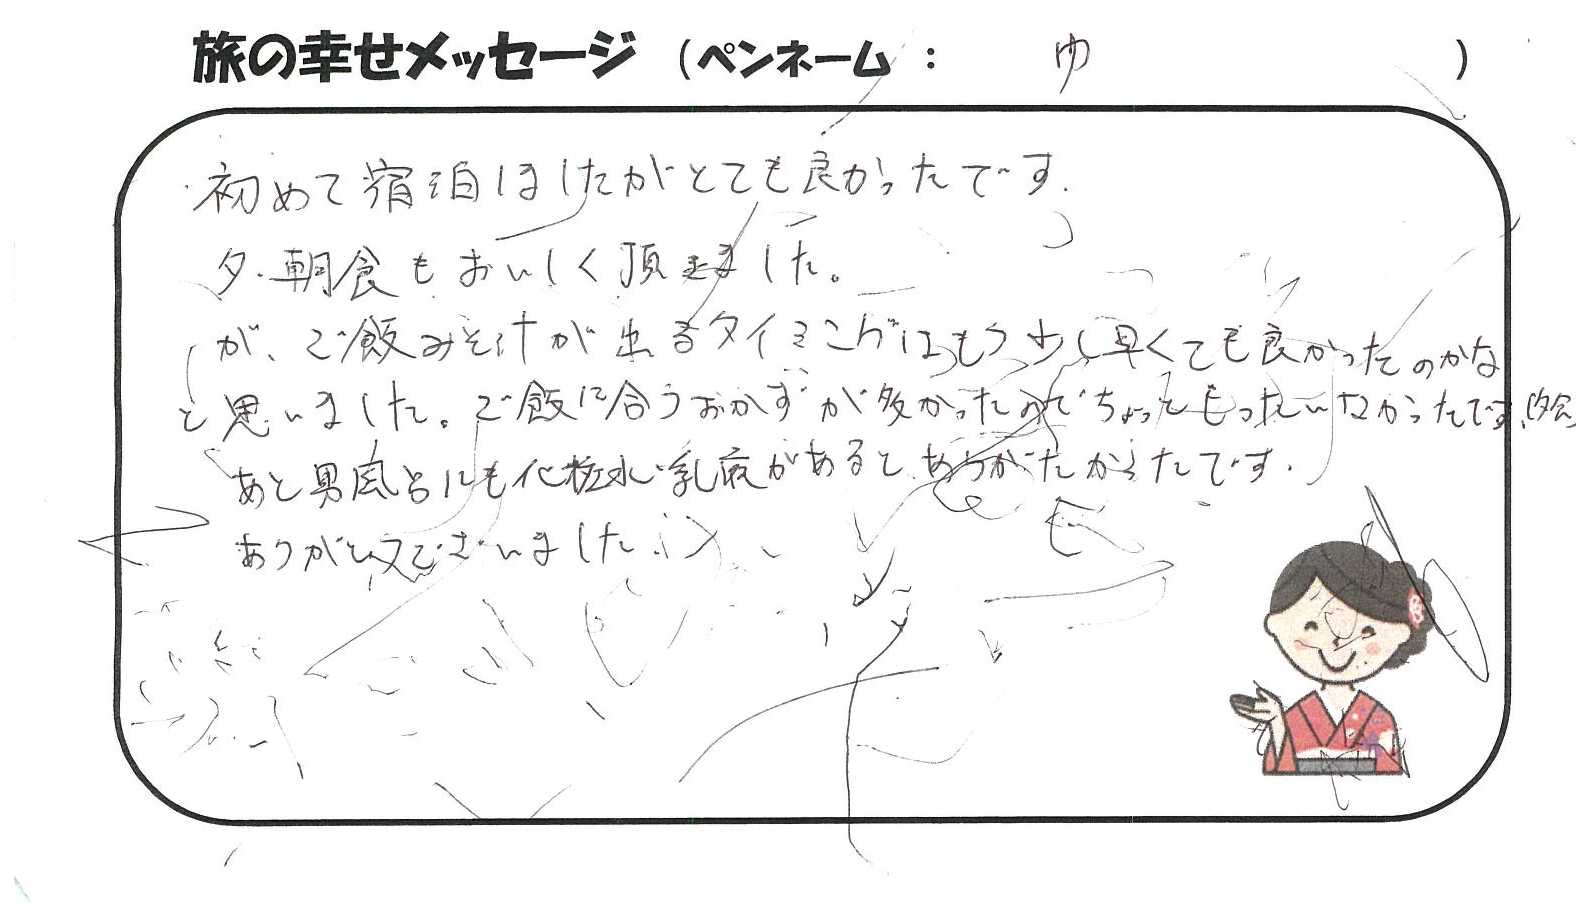 旅の幸せメッセージ (ペンネーム : ゆ )
初めて宿泊しましたがとても良かったです.
夕・朝食もおいしく頂きました。
が、ご飯みそ汁が出るタイミングはもう少し早くても良かったのかな
と思いました。ご飯に合うおかずが多かったのでちょっともったいなかったです。(夕食)
あと男風呂にも化粧水・乳液があると、ありがたかったです.
ありがとうございました.